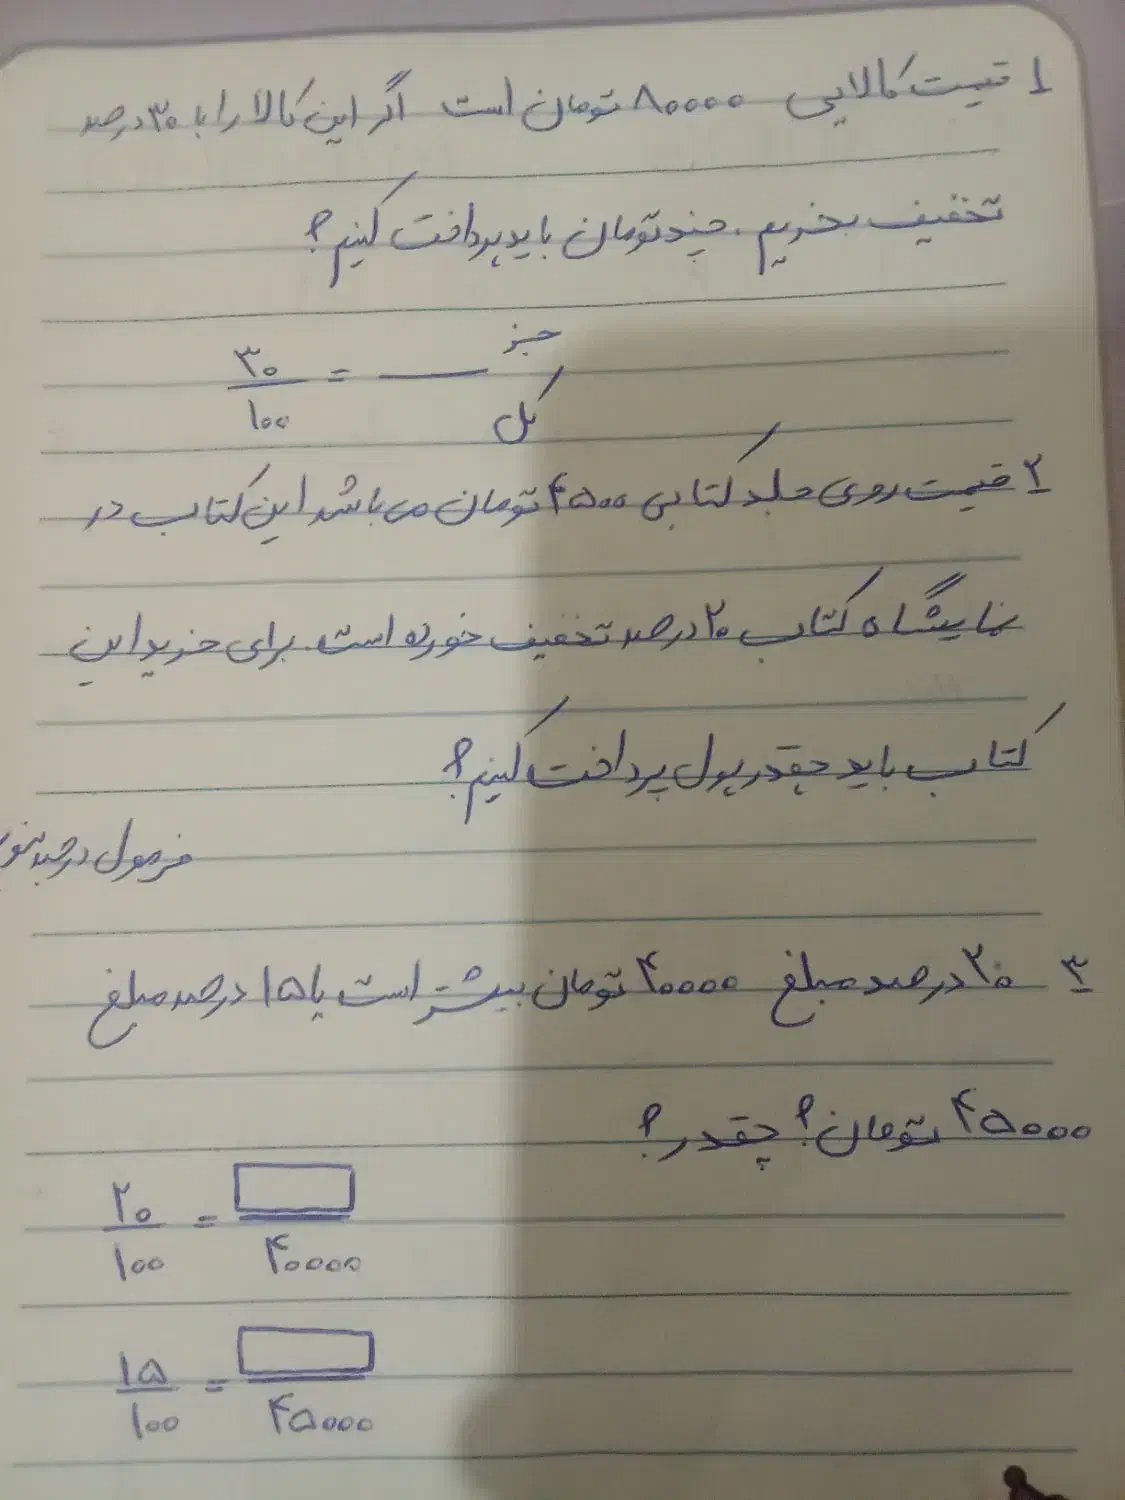 ۱ قیمت کالایی ۸۰۰۰۰ تومان است اگر این کالا را با ۳۰ درصد
تخفیف بخریم. چند تومان باید پرداخت کنیم؟
۳۰/۱۰۰ = ــــ جز
کل
۲ قیمت روی جلد کتابی ۴۵۰۰ تومان می باشد این کتاب در
نمایشگاه کتاب ۲۰ درصد تخفیف خورده است. برای خرید این
کتاب باید چقدر پول پرداخت کنیم؟
فرمول درصد
۳ ۲۰ درصد مبلغ ۴۰۰۰۰ تومان بیشتر است یا ۱۵ درصد مبلغ
۴۵۰۰۰ تومان؟ چقدر؟
۲۰/۱۰۰ = □/۴۰۰۰۰
۱۵/۱۰۰ = □/۴۵۰۰۰